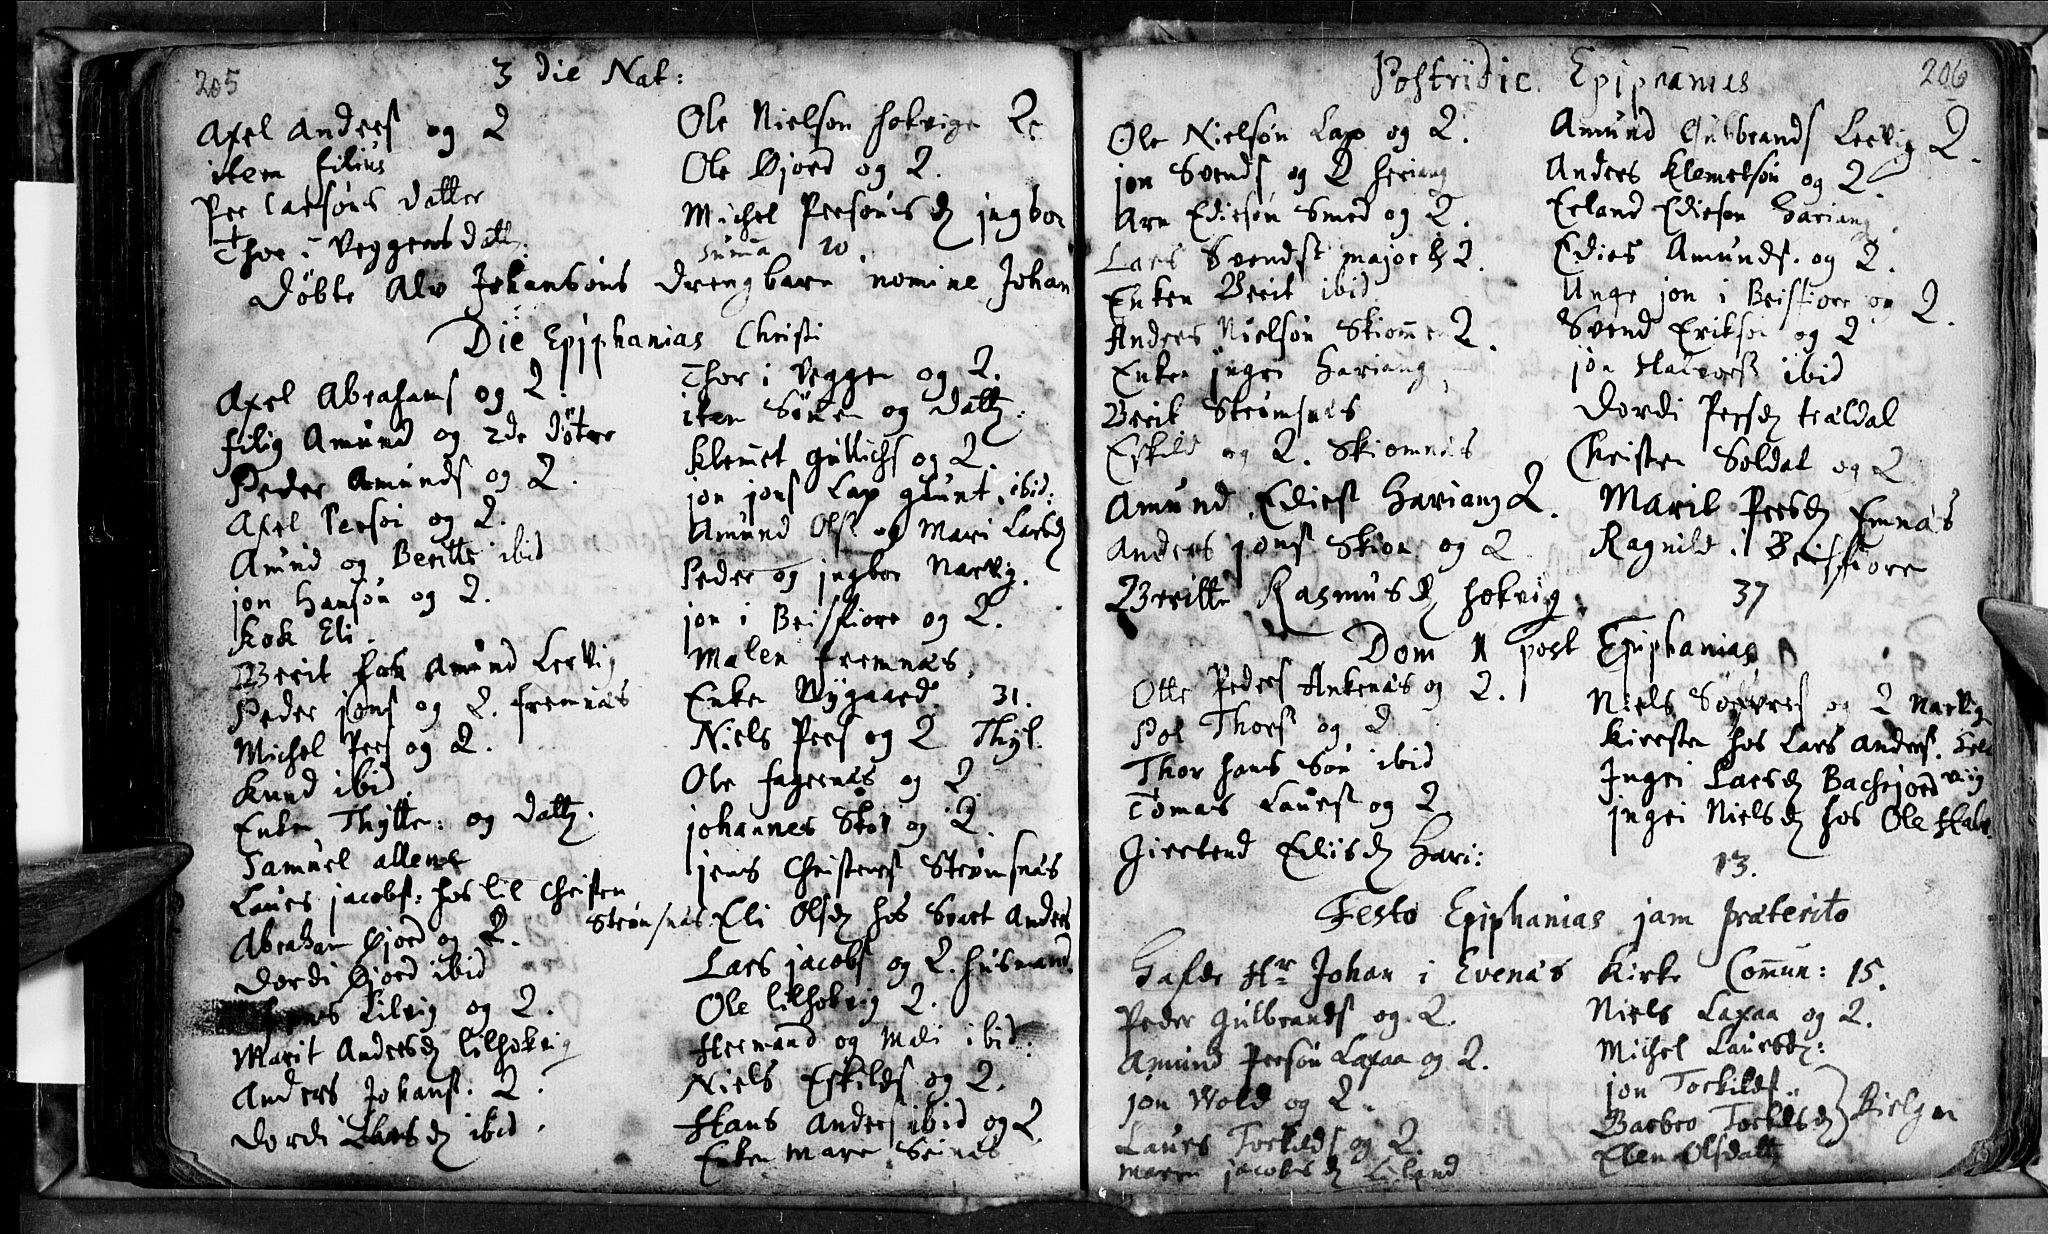 205
3 die Nat:
Axel Anders og Q
item filius
Per Larsøns datter
Thor i Veggens datt:
Ole Nielsøn hokvigen Q
Ole Øjord og Q.
Michel Persøns D jngbor
summa 20.
Døbte Alv Johansøns drengbarn nomine Johan
Die Epiphanias Christi
Axel Abrahams og Q
filig Amund og 2de døtre
Peder Amunds og Q.
Axel Persøn og Q.
Amund og Beritte ibid
jon Hansøn og Q.
Kok Eli.
Berit hos Amund Lervig
Peder jons og Q. fremnæs
Michel Pers og Q.
Knud ibid
Enken Thytte: og datt.
Samuel allene
Laurs jacobs: hos lil Christen
Strømsnæs
Abraham Øjord og Q.
Dordi Øjord ibid
Lilvig og Q.
Marit Andersd lilhokvig
Anders Johans. Q.
Dordi Larsd ibid.
Thor i Veggen og Q.
item Sønnen og datt:
Klemet Gullichs og Q.
jon jons Lap glunt. ibid:
Amund Ols og Mari Larsd
Peder og jngbor Narvig.
jon i Beisfiore og Q.
Malen fremnæs.
Enken Nygaard. 31.
Niels Pers og Q Thyl.
Ole fagernæs og Q.
johannes Skov og Q.
jens Christens Strømsnæs
Eli Olsd hos Svart Anders
Lars jacobs og Q. husmand.
Ole lilhokvig Q.
Hermand og Mali ibid:
Niels Eskilds og Q.
Hans Anders ibid og Q.
Enken Mare Seines
206
Postridie Epiphanias
Ole Nielsøn Lap og Q.
jon Svends og Q heriang
Arn Ediesøn Smed og Q.
Lars Svends major & Q.
Enken Berit ibid
Anders Nielsøn Skiomen Q.
Enken jngri Hariang
Berit Strømsnæs
Eskild og Q. Skiomnæs
Amund Edies Hariang Q.
Anders jons Skion og Q
Beritte Rasmusd hokvig.
Amund Gulbrands Lervig Q.
Anders Klemetsøn og Q.
Erland Ediesøn Hariang
Edies Amunds. og Q.
Unge jon i Beisfiore og Q.
Svend Eriksø og Q
jon Halvors ibid
Dordi Persd trældal
Christen Soldat og Q
Marit Persd Emnæs
Ragnild i Beisfiore
37
Dom 1 post Epiphanias
Otte Peders Ankenæs og Q.
Pol Thors og Q
Thor hans Søn ibid
Tomas Laurs og Q
Giertrud Ediisd Hari:
Niels Søfvres og Q Narvig
Kirsten hos Lars Anders.
Jngri Larsd Bachejord
jngri Nielsd hos Ole
13.
Festo Epiphanias jam præterito
Hafde Hr Johan i Evenæs Kirke Commun: 15.
Peder Gulbrands og Q.
Amund Persøn Laxaa og Q.
jon Wold og Q.
Laurs Torkilds og Q
Maren jacobsd Liland
Niels Laxaa og Q.
Michel Laursd:
jon Torkilds.
Barbro Torkilsd
Elen Olsdatt